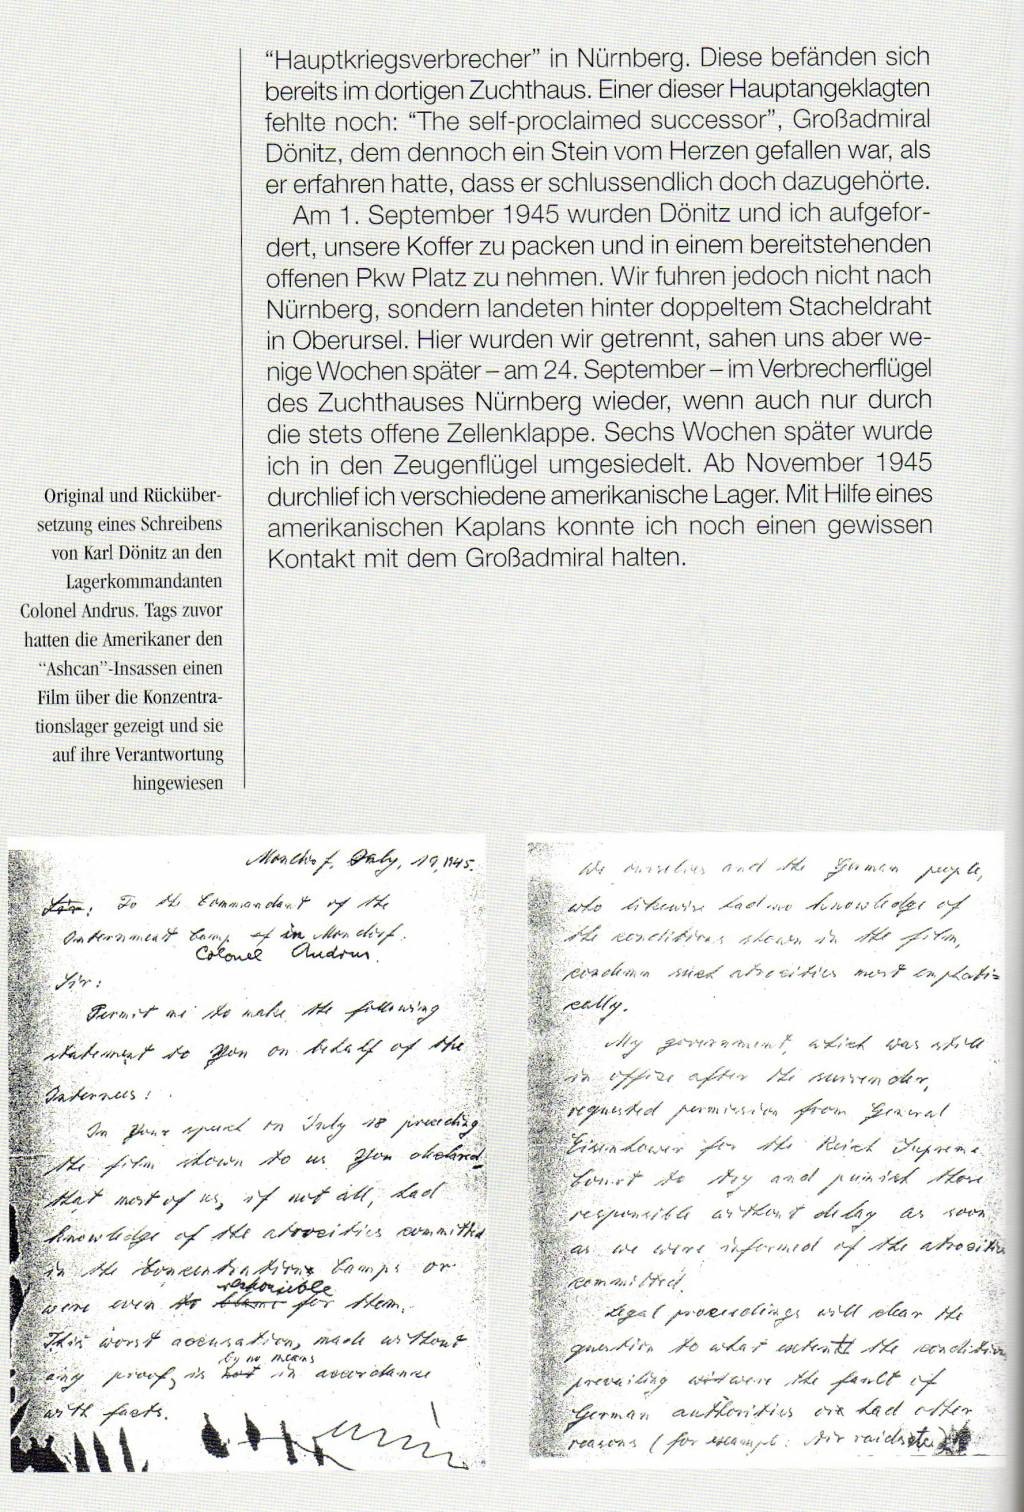 "Hauptkriegsverbrecher" in Nürnberg. Diese befänden sich
bereits im dortigen Zuchthaus. Einer dieser Hauptangeklagten
fehlte noch: "The self-proclaimed successor", Großadmiral
Dönitz, dem dennoch ein Stein vom Herzen gefallen war, als
er erfahren hatte, dass er schlussendlich doch dazugehörte.
Am 1. September 1945 wurden Dönitz und ich aufgefor-
dert, unsere Koffer zu packen und in einem bereitstehenden
offenen Pkw Platz zu nehmen. Wir fuhren jedoch nicht nach
Nürnberg, sondern landeten hinter doppeltem Stacheldraht
in Oberursel. Hier wurden wir getrennt, sahen uns aber we-
nige Wochen später – am 24. September – im Verbrecherflügel
des Zuchthauses Nürnberg wieder, wenn auch nur durch
die stets offene Zellenklappe. Sechs Wochen später wurde
ich in den Zeugenflügel umgesiedelt. Ab November 1945
durchlief ich verschiedene amerikanische Lager. Mit Hilfe eines
amerikanischen Kaplans konnte ich noch einen gewissen
Kontakt mit dem Großadmiral halten.
Original und Rücküber-
setzung eines Schreibens
von Karl Dönitz an den
Lagerkommandanten
Colonel Andrus. Tags zuvor
hatten die Amerikaner den
"Ashcan"-Insassen einen
Film über die Konzentra-
tionslager gezeigt und sie
auf ihre Verantwortung
hingewiesen
Mondorf, July, 19, 1945.
Sir: To the Commandant of the
Internment Camp of in Mondorf.
Colonel Andrus.
Sir:
Permit me to make the following
statement to you on behalf of the
Internees:
In your speech on July 18 preceding
the film shown to us you declared
that most of us, if not all, had
knowledge of the atrocities committed
in the Concentration Camps or
responsible
were even to blame for them.
This worst accusation, made without
by no means
any proof, is not in accordance
with facts.
We ourselves and the German people,
who likewise had no knowledge of
the conditions shown in the film,
condemn such atrocities most emphati=
cally.
My government, which was still
in office after the surrender,
requested permission from General
Eisenhower for the Reich Supreme
Court to try and punish those
responsible without delay as soon
as we were informed of the atrocities
committed.
Legal proceedings will clear the
question to what extent the conditions
prevailing were the fault of
German authorities or had other
reasons (for example: Air raids